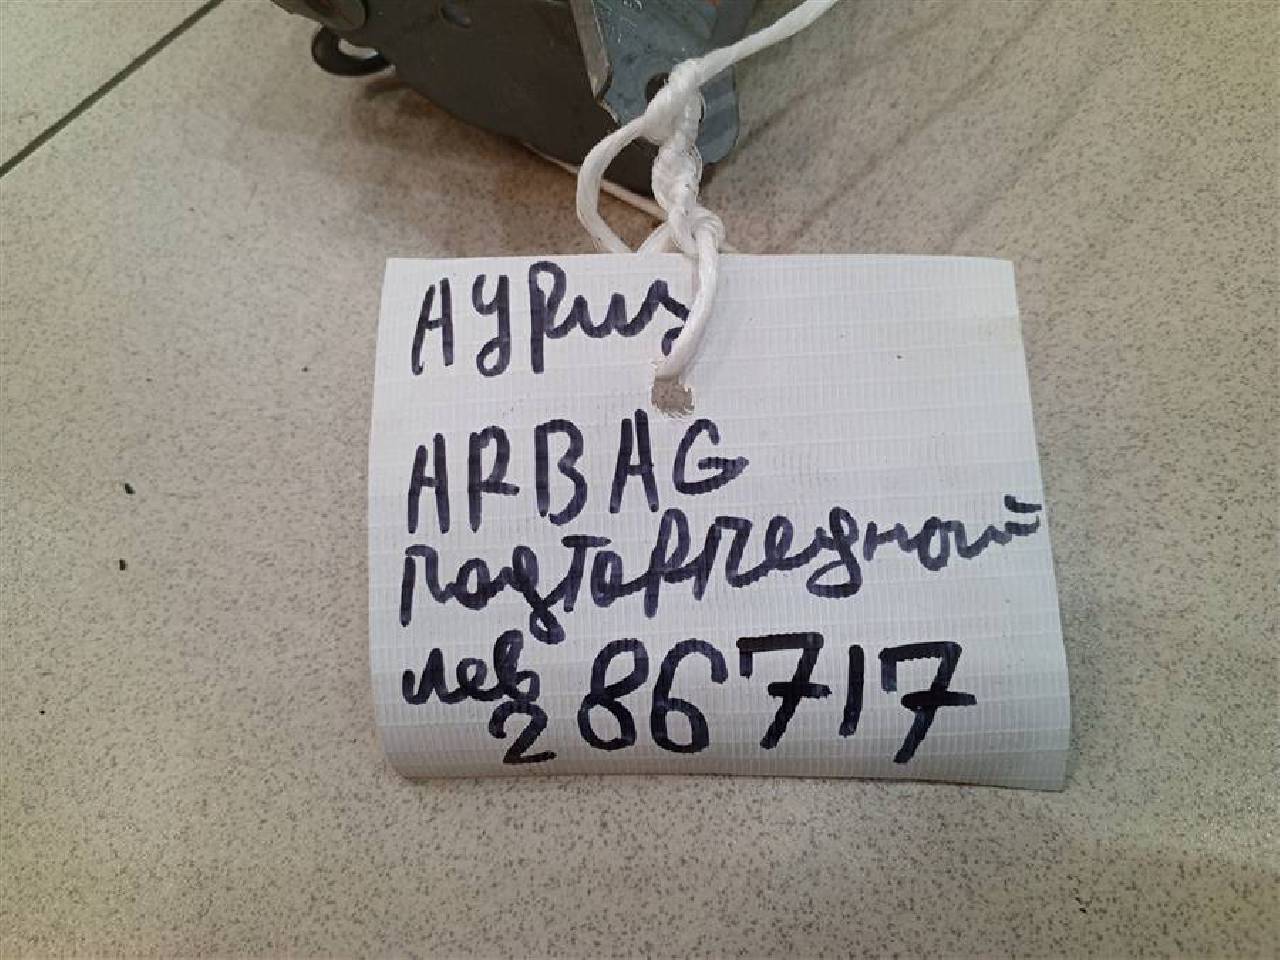 АУРиз
ARBAG
подторпедный
лев
286717